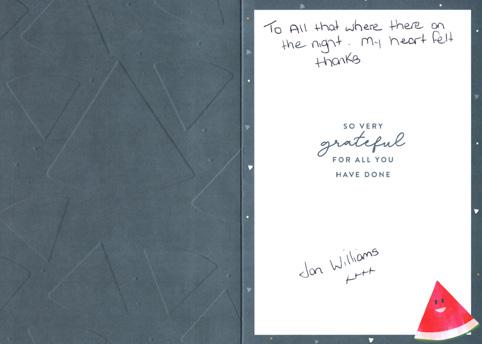 To All that where there on
the night. My heart felt
thanks
SO VERY
grateful
FOR ALL YOU
HAVE DONE
Jan Williams
x+++